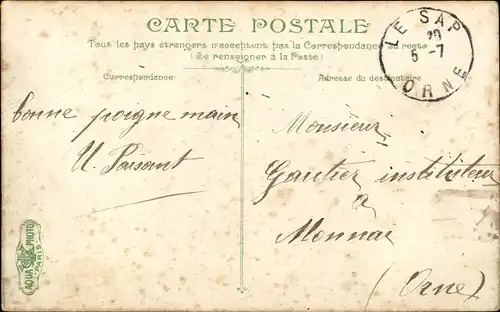 CARTE POSTALE
Tous les pays étrangers n'acceptent pas la Correspondance au recto
(Se renseigner à la Poste)
Correspondance
Adresse du destinataire
LE SAP
20
5 -7
ORNE
bonne poigne main
Monsieur
Gautier instituteur
à
Monnai
(Orne)
AQUA PHOTO
PARIS